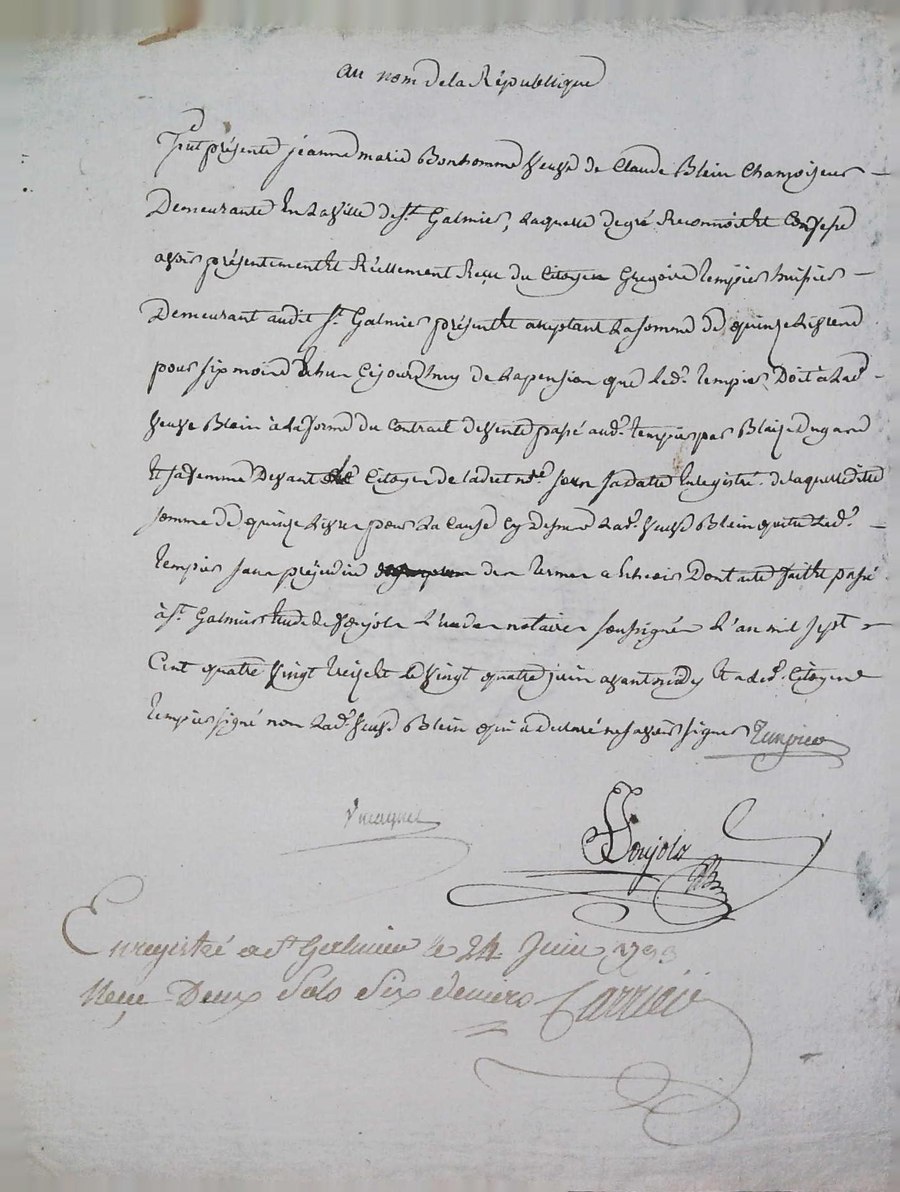 au nom de la République
fut présente jeanne marie Bonhomme veuve de Claude Blein Chamoiseur
Demeurante En la ville de St. Galmier, laquelle de gré Reconnoit et Confesse
avoir présentement et Réellement Reçu du Citoyen Gregoire tempier huissier
Demeurant audit St. Galmier présent et aceptant la somme de quinze livres
pour six mois Echus Cejourd'huy de la pension que led. tempier Doit à lad.
veuve Blein à la forme du Contrait de vente passé aud. tempier par Blaize dugand
Et sa femme Devant le Citoyen de ladret nre. sous sa datte Enregistré. de laquelle ditte
somme de quinze livres pour la Cause Cy Dessus lad. veuve Blein quitte led.
tempier sans préjudice des termes a Echeoir Dont acte fait et passé
à St. Galmier Etude de Voujols l'un des notaires soussignés L'an mil sept
Cent quatre vingt treize et le vingt quatre juin avant midy Et a led. Citoyen
tempier signé non lad. veuve Blein qui a declaré ne savoir signer Tempier
Voujols
Enregistré a St Galmier le 24 Juin 1793
Reçu Deux Sols Six deniers Carrier